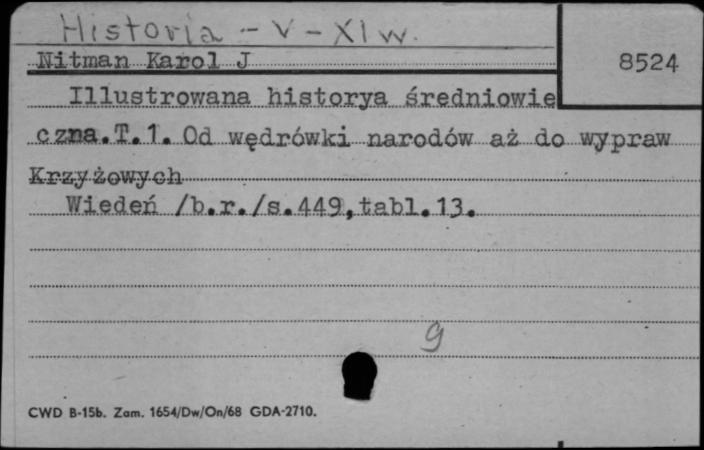 Historia - V - XI w.
Nitman Karol J
8524
Illustrowana historya średniowie
czna.T.1. Od wędrówki narodów aż do wypraw
Krzyżowych
Wiedeń /b.r./s.449,tabl.13.
9
CWD B-15b. Zam. 1654/Dw/On/68 GDA-2710.